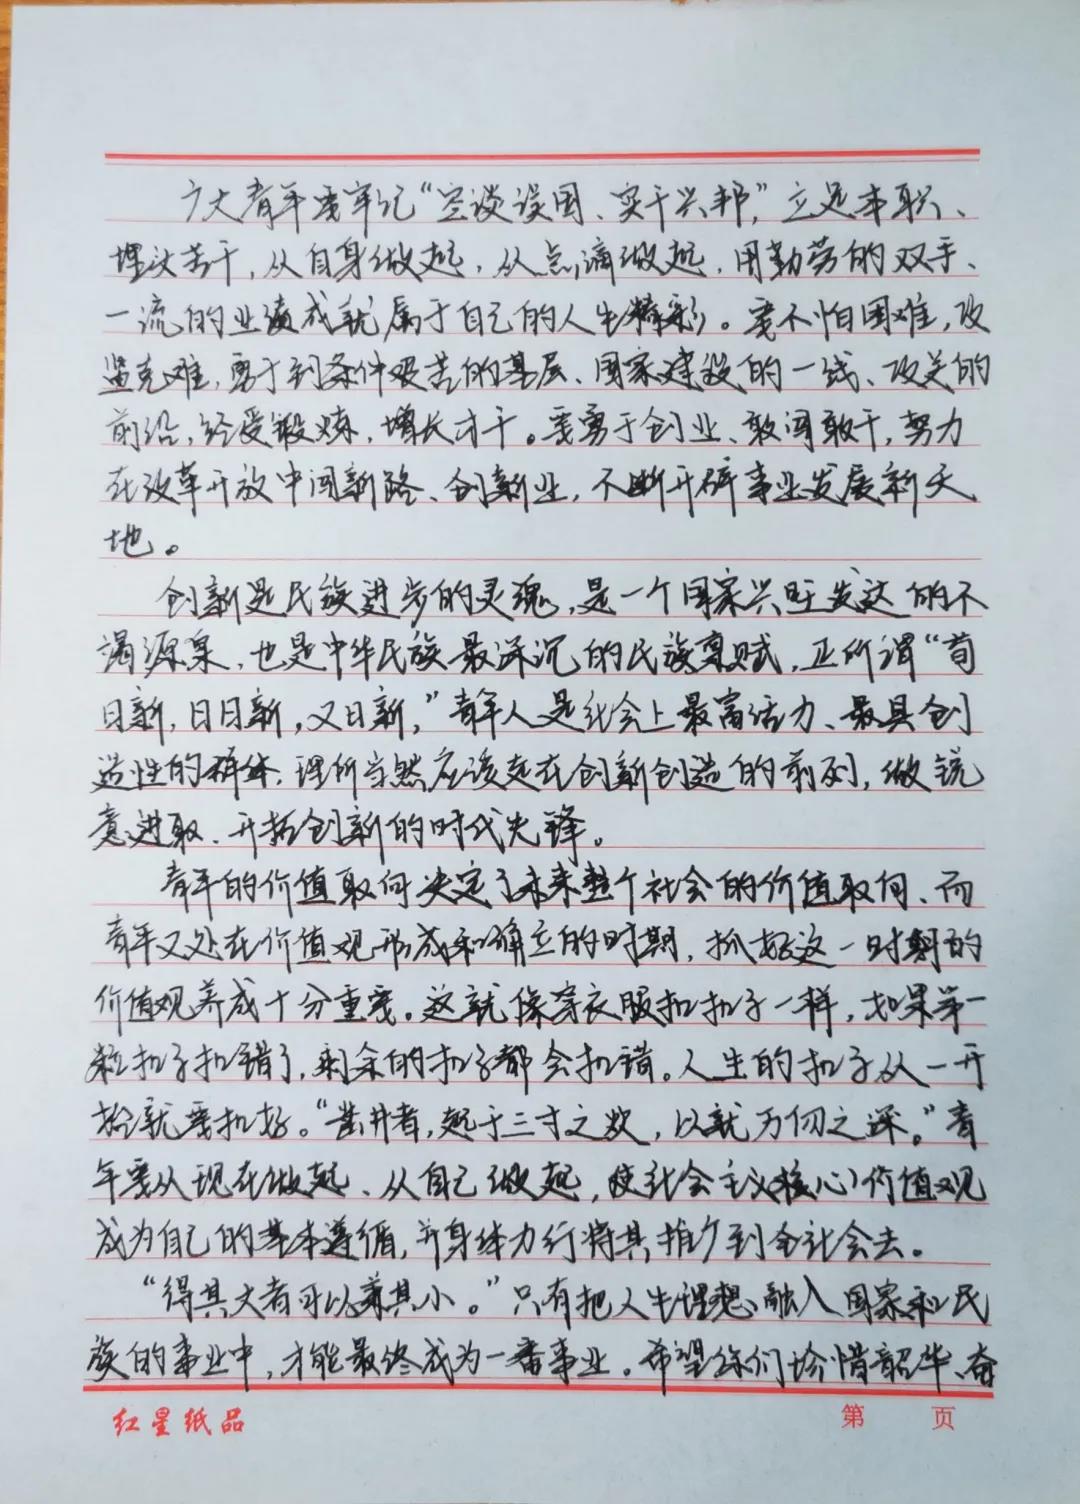 广大青年要牢记“空谈误国、实干兴邦”，立足本职、
埋头苦干，从自身做起，从点滴做起，用勤劳的双手、
一流的业绩成就属于自己的人生精彩。要不怕困难，攻
坚克难，勇于到条件艰苦的基层、国家建设的一线、攻关的
前沿，经受锻炼，增长才干。要勇于创业、敢闯敢干，努力
在改革开放中闯新路、创新业，不断开辟事业发展新天
地。
创新是民族进步的灵魂，是一个国家兴旺发达的不
竭源泉，也是中华民族最深沉的民族禀赋，正所谓“苟
日新，日日新，又日新，”青年人是社会上最富活力、最具创
造性的群体，理所当然应该走在创新创造的前列，做锐
意进取、开拓创新的时代先锋。
青年的价值取向决定了未来整个社会的价值取向、而
青年又处在价值观形成和确立的时期，抓好这一时期的
价值观养成十分重要。这就像穿衣服扣扣子一样，如果第一
粒扣子扣错了，剩余的扣子都会扣错。人生的扣子从一开
始就要扣好。“凿井者，起于三寸之坎，以就万仞之深。”青
年要从现在做起、从自己做起，使社会主义核心价值观
成为自己的基本遵循，并身体力行将其推广到全社会去。
“得其大者可以兼其小。”只有把人生理想融入国家和民
族的事业中，才能最终成为一番事业。希望你们珍惜韶华、奋
红星纸品
第 页